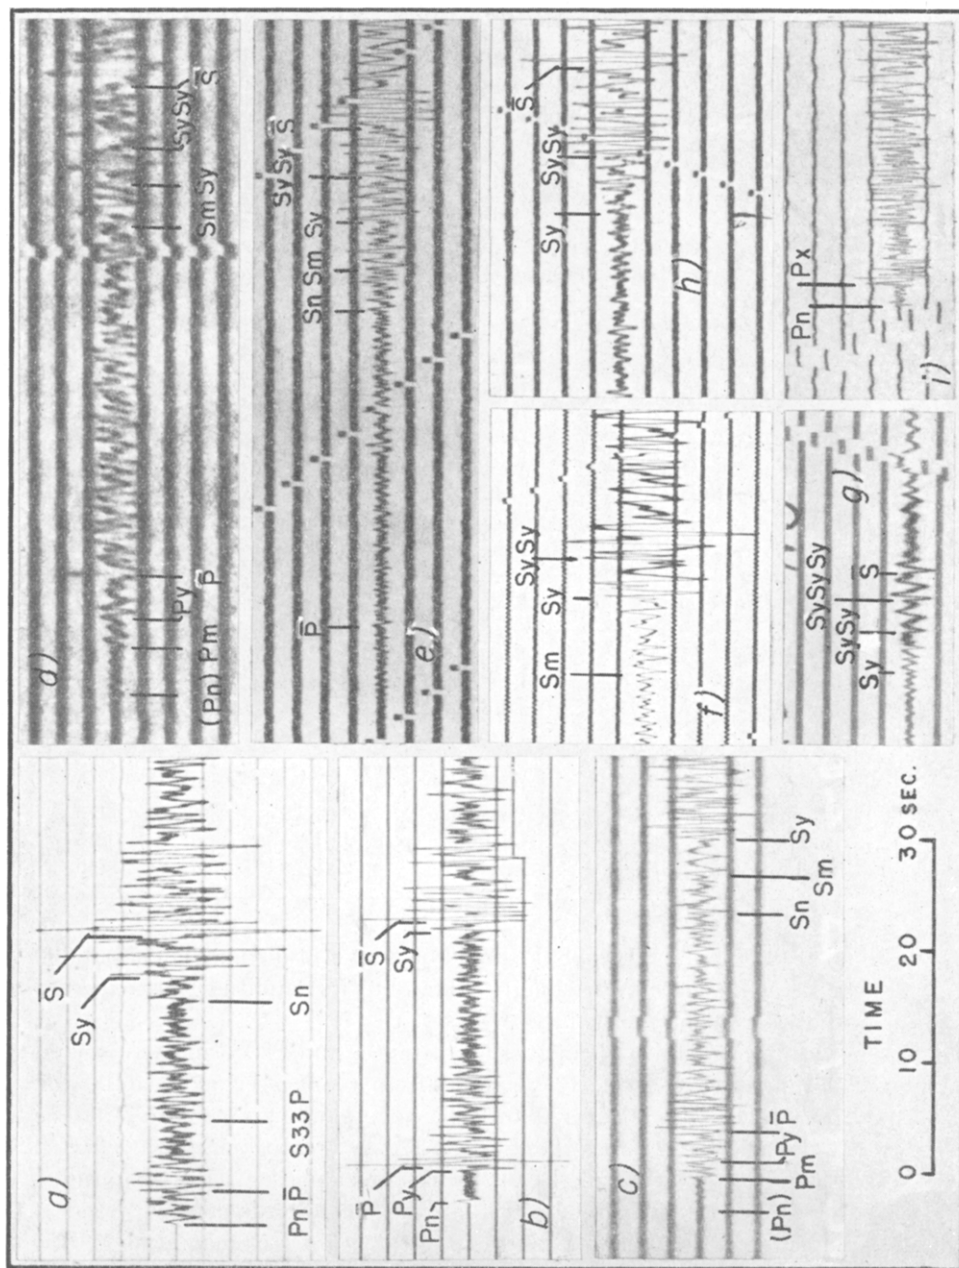 a)
S̄
Sy
Pn P̄ S33P Sn
b)
P̄
Py
Pn
S̄
Sy
c)
(Pn) Pm Py P̄ Sn Sm Sy
TIME
0 10 20 30 SEC.
d)
(Pn) Pm Py P̄ Sm Sy SySy S̄
e)
P̄ Sn Sm Sy SySy S̄
f)
Sm Sy SySy
h)
Sy SySy S̄
g)
Sy SySy SySySy S̄
i)
Pn Px